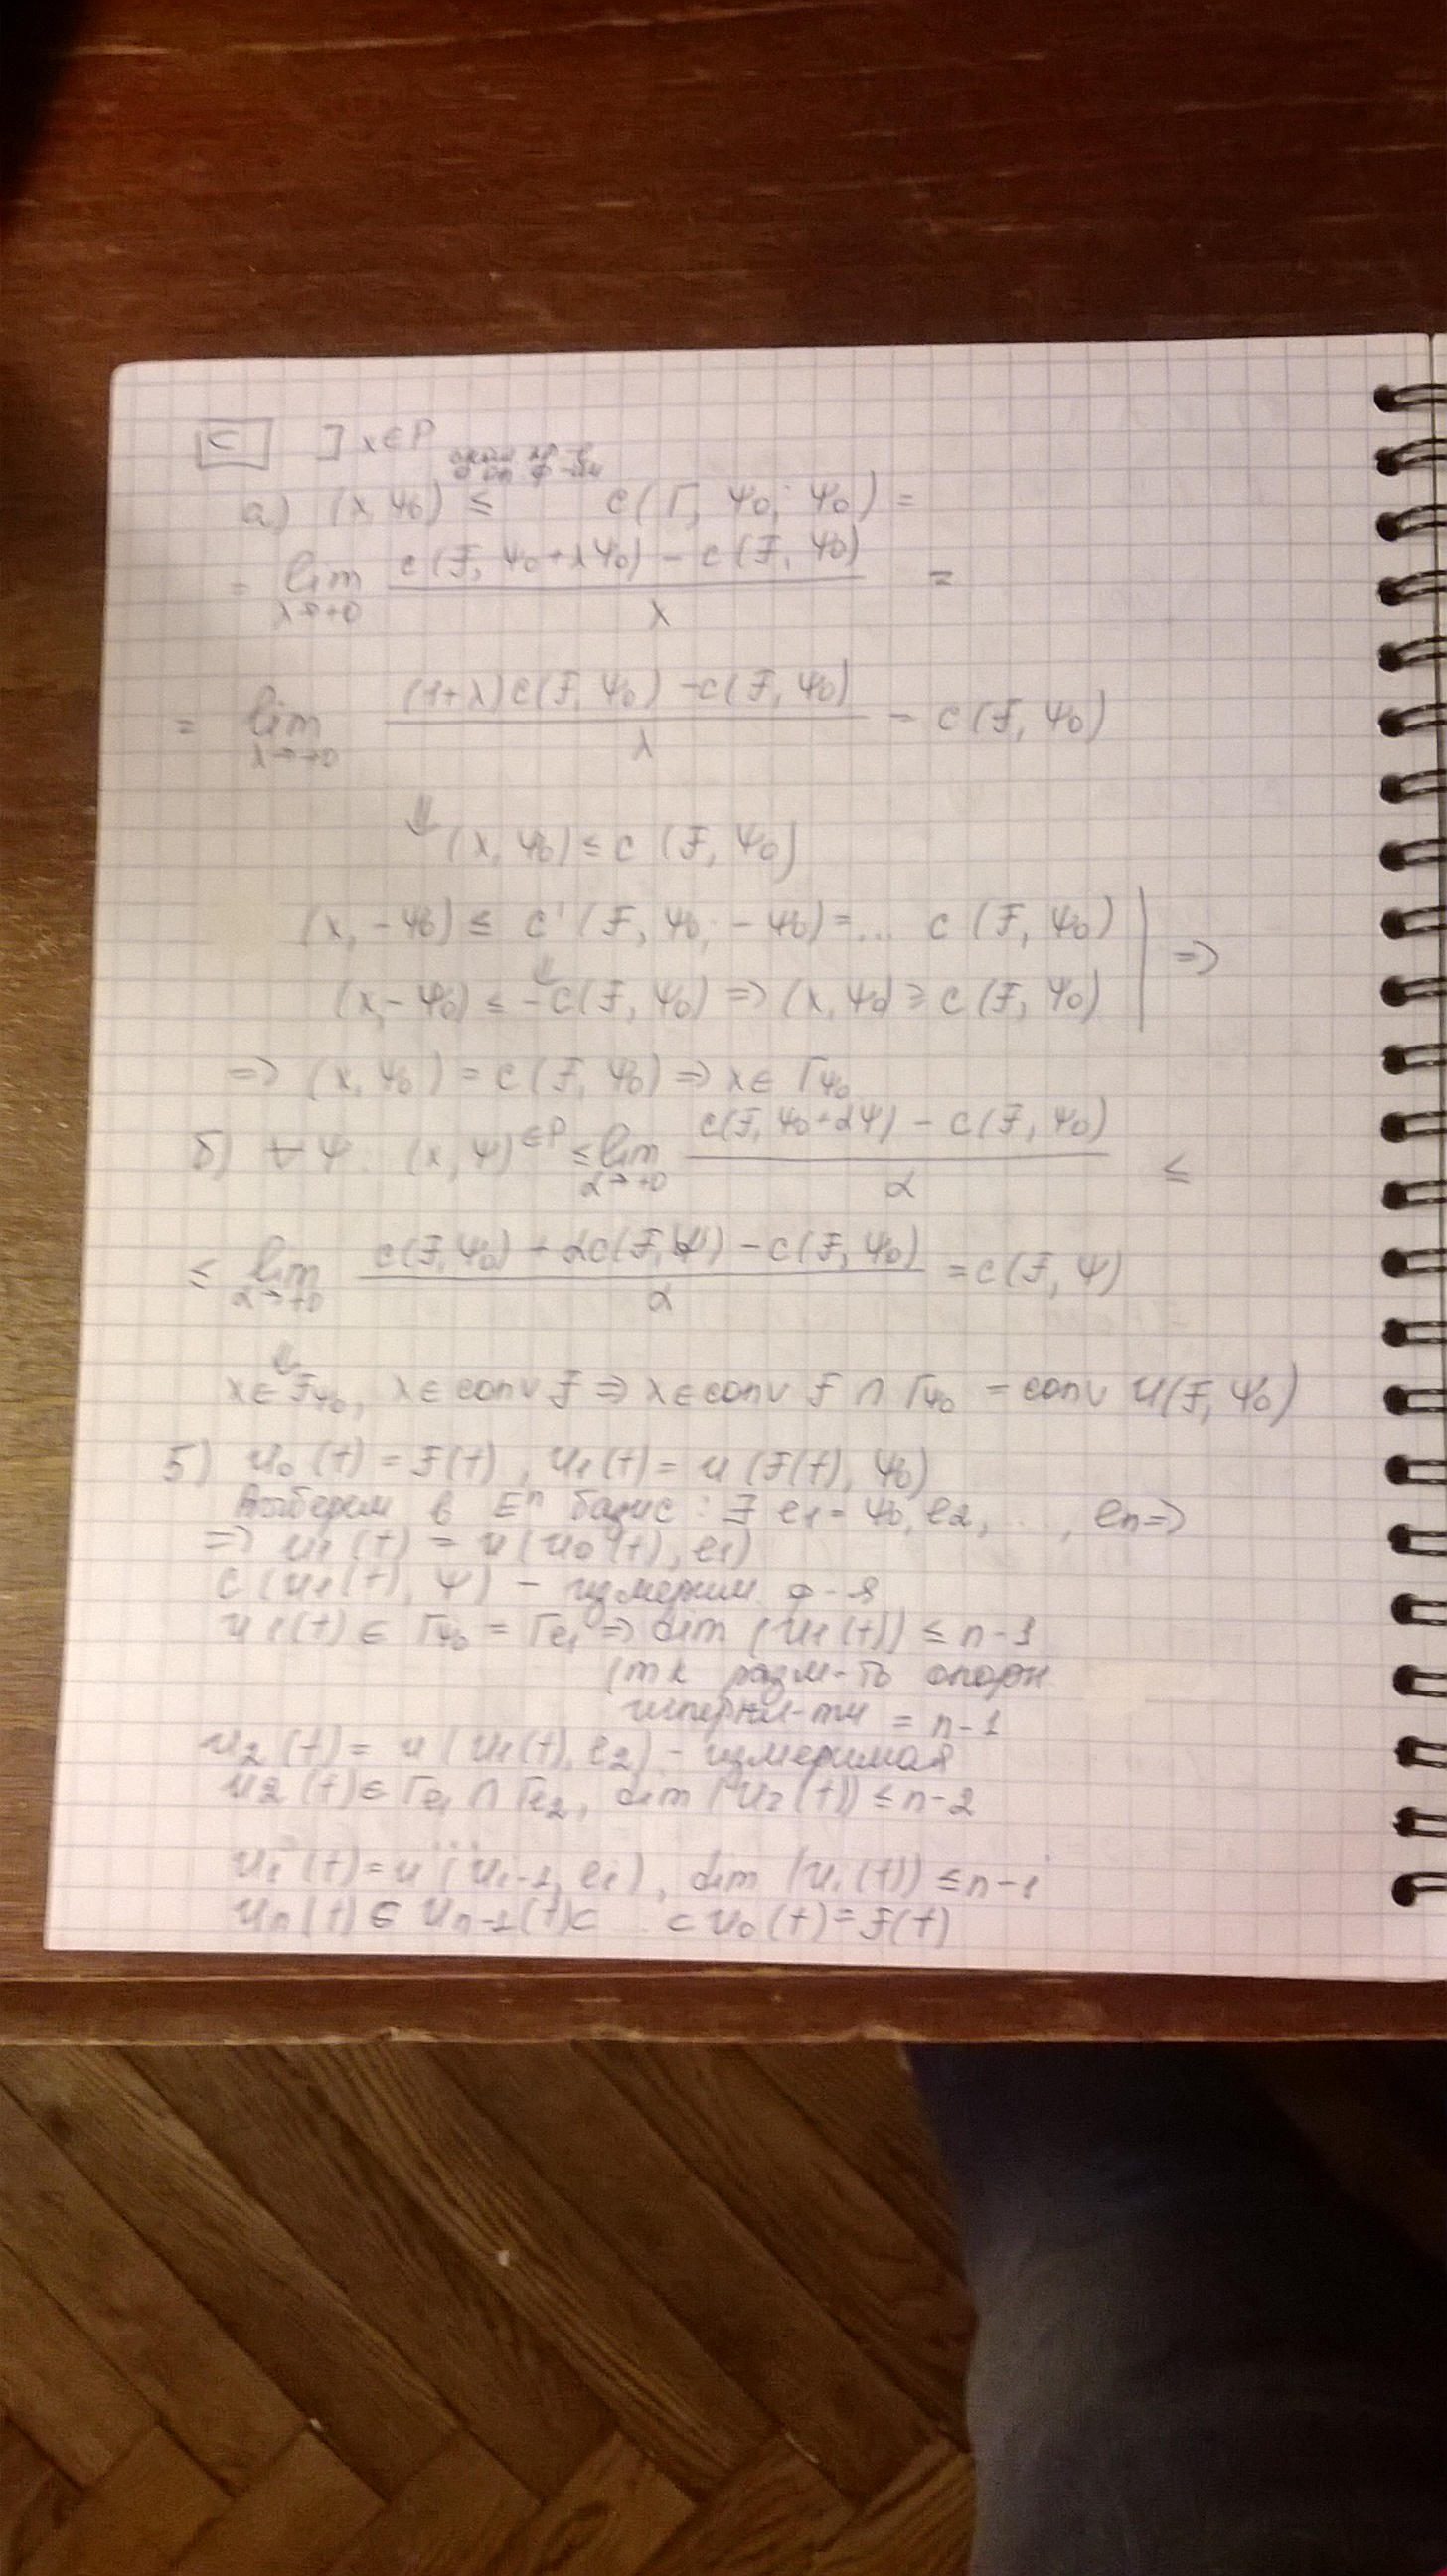 ⊂ ] x ∈ P
а) (x, ψ₀) ≤ c(F, ψ₀; ψ₀) =
= lim λ→+0 (c(F, ψ₀+λψ₀) − c(F, ψ₀)) / λ =
= lim λ→+0 ((1+λ)c(F, ψ₀) − c(F, ψ₀)) / λ = c(F, ψ₀)
⇓ (x, ψ₀) ≤ c(F, ψ₀)
(x, −ψ₀) ≤ c'(F, ψ₀; −ψ₀) = ... c(F, ψ₀)
(x, −ψ₀) ≤ −c(F, ψ₀) => (x, ψ₀) ≥ c(F, ψ₀) | =>
=> (x, ψ₀) = c(F, ψ₀) => x ∈ Γψ₀
б) ∀ψ (x, ψ) ∈P ≤ lim α→+0 (c(F, ψ₀+αψ) − c(F, ψ₀)) / α ≤
≤ lim α→+0 (c(F, ψ₀) + αc(F, ψ) − c(F, ψ₀)) / α = c(F, ψ)
⇓
x ∈ Γψ₀, x ∈ conv F => x ∈ conv F ∩ Γψ₀ = conv U(F, ψ₀)
5) U₀(t) = F(t), U₁(t) = U(F(t), ψ₀)
Выберем в Eⁿ базис: ∃ e₁ = ψ₀, e₂, ..., eₙ =>
=> U₁(t) = U(U₀(t), e₁)
c(U₁(t), ψ) − измерим. ф-я
U₁(t) ∈ Γψ₀ = Γe₁ => dim (U₁(t)) ≤ n−1
(т.к. разм-ть опорн.
гиперпл-ти = n−1
U₂(t) = U(U₁(t), e₂) − измеримая
U₂(t) ∈ Γe₁ ∩ Γe₂, dim (U₂(t)) ≤ n−2
...
Uᵢ(t) = U(Uᵢ₋₁, eᵢ), dim (Uᵢ(t)) ≤ n−i
Uₙ(t) ∈ Uₙ₋₁(t) ⊂ ... ⊂ U₀(t) = F(t)